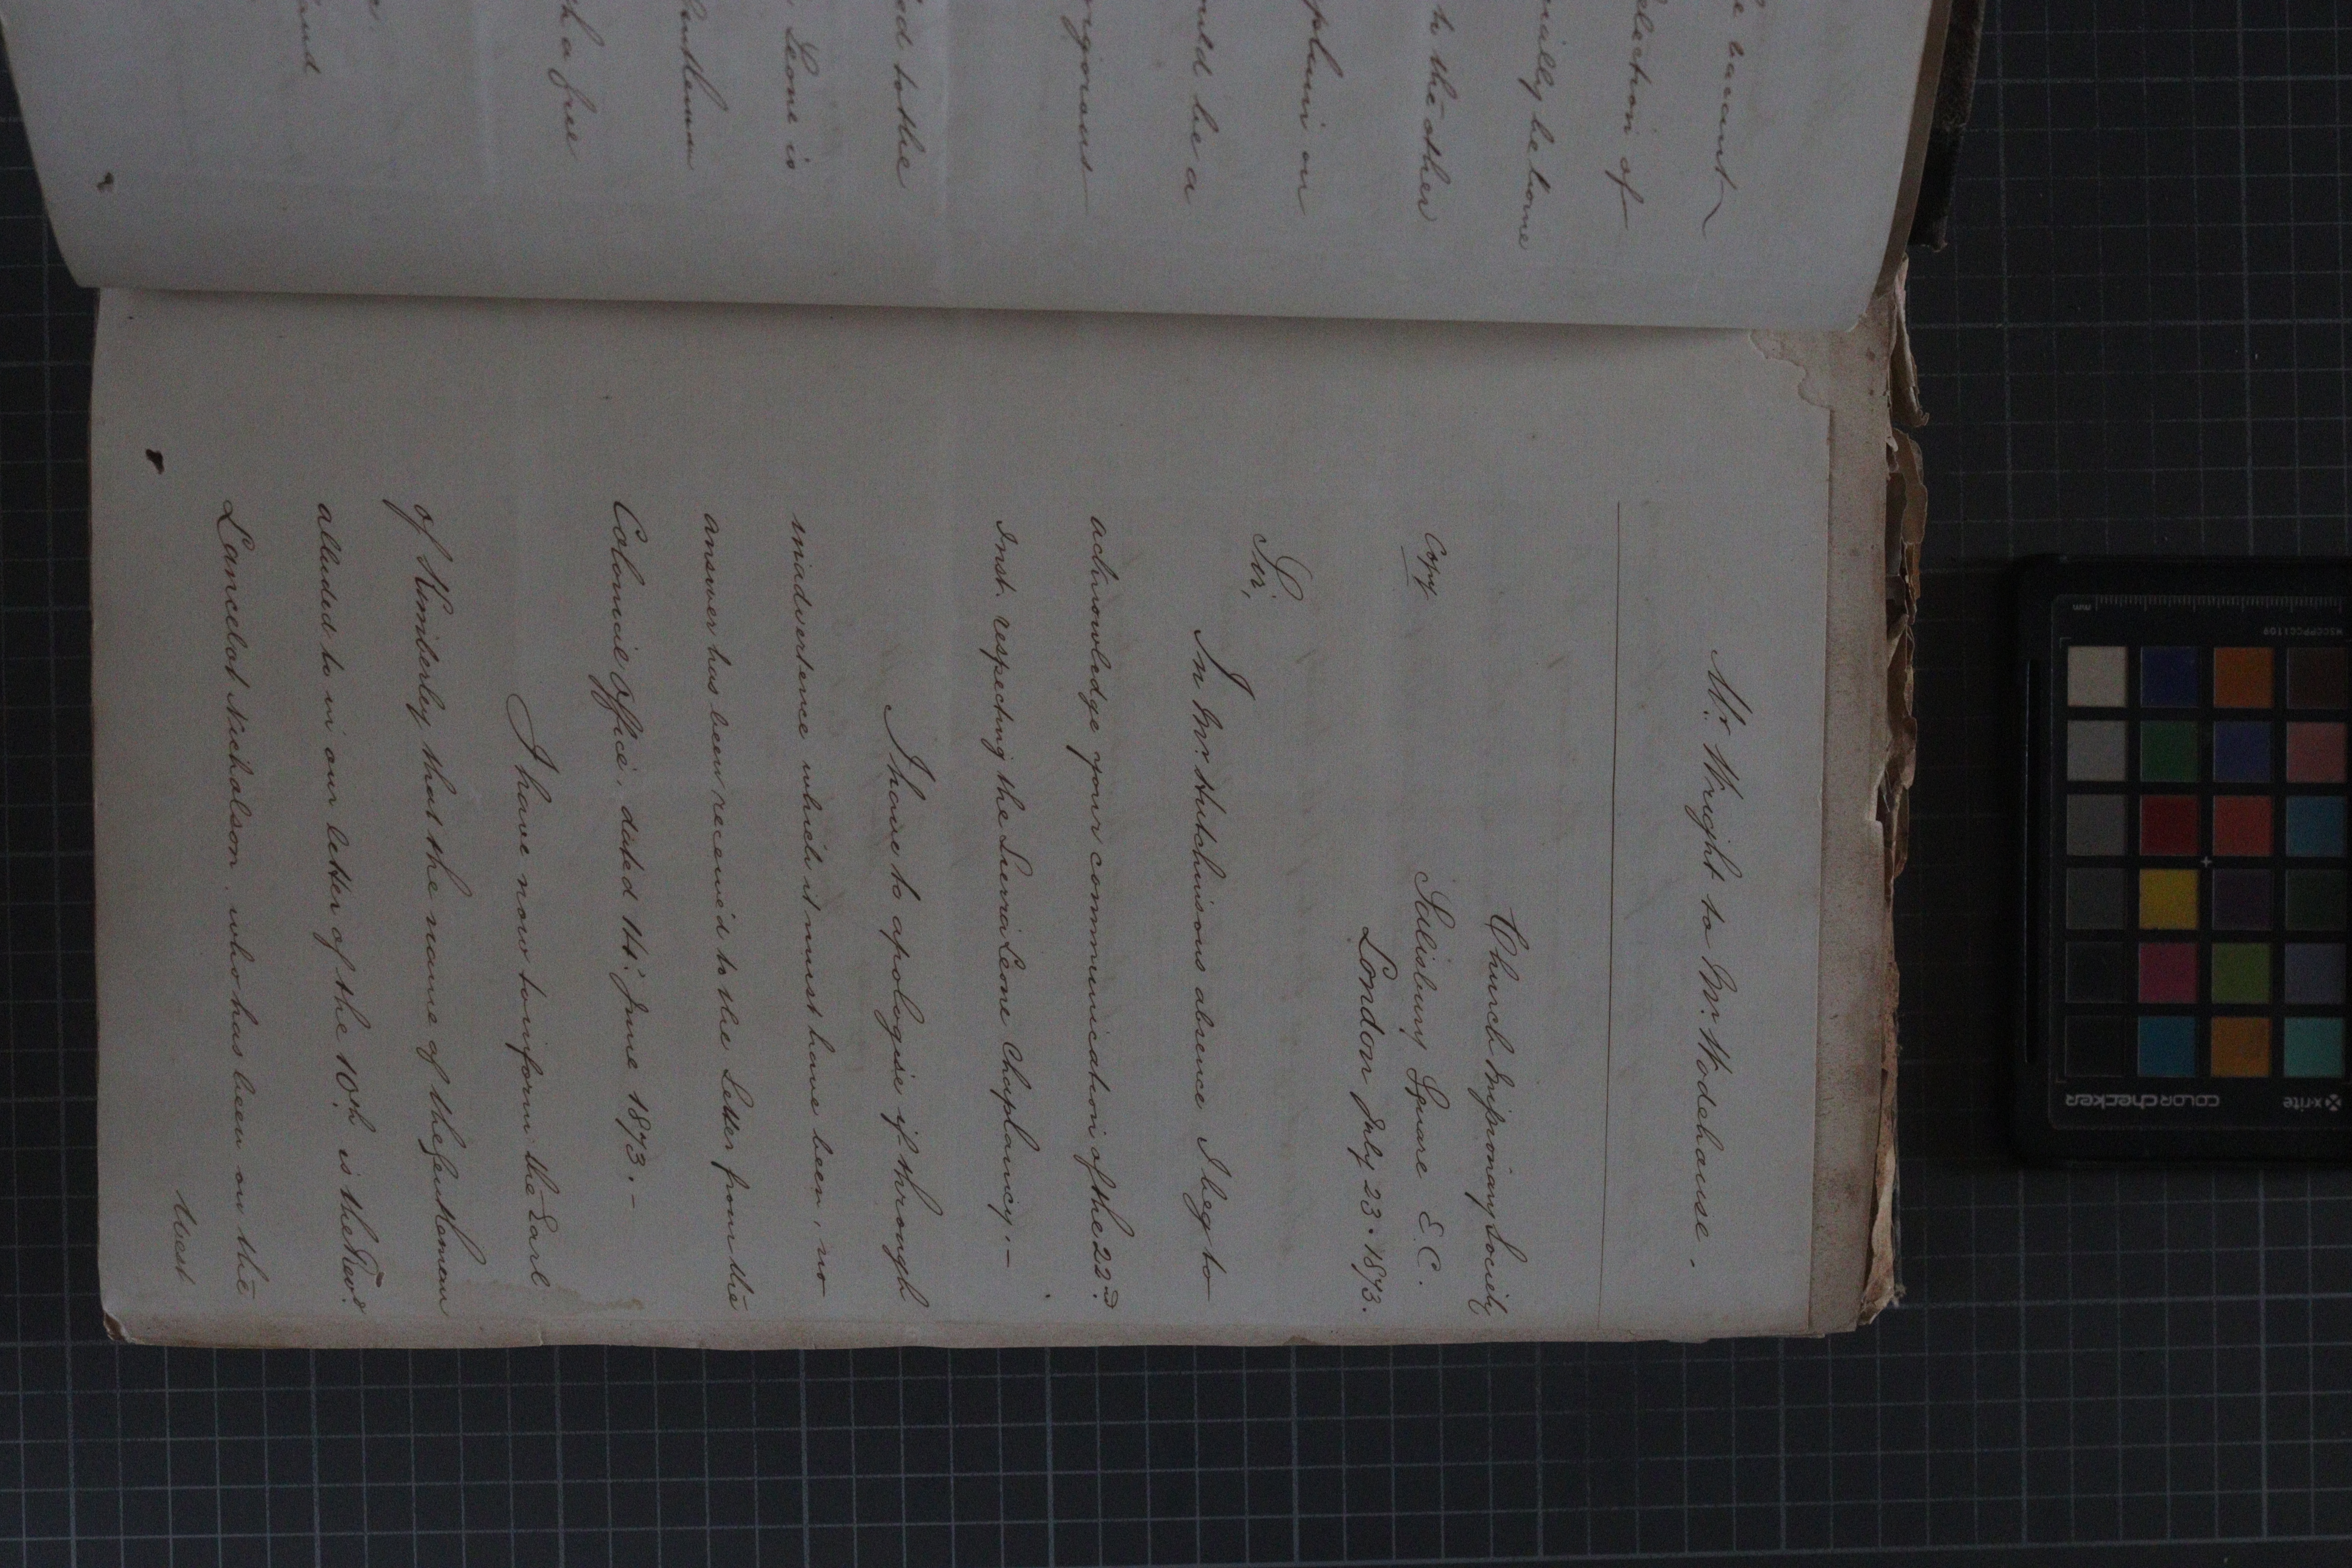 e vacant
election of
nially be borne
to the other
aplain on
ould be a
igorous
ed to the
Leone is
Gentleman
th a free
and
e.
Mr. Wright to Mr. Wodehouse.
Church Missionary Society
Copy
Salisbury Square E.C.
London July 23. 1873.
Sir,
In Mr. Hutchinsons absence I beg to
acknowledge your communication of the 22nd.
Inst. respecting the Sierra Leone Chaplaincy.—
I have to apologise if through
inadvertence which it must have been, no
answer has been receive'd to the Letter from the
Colonial Office, dated 14. June 1873.—
I have now to inform the Earl
of Kimberley that the name of the Gentleman
alluded to in our letter of the 10th. is the Revd.
Lancelot Nicholson, who has been on the
West